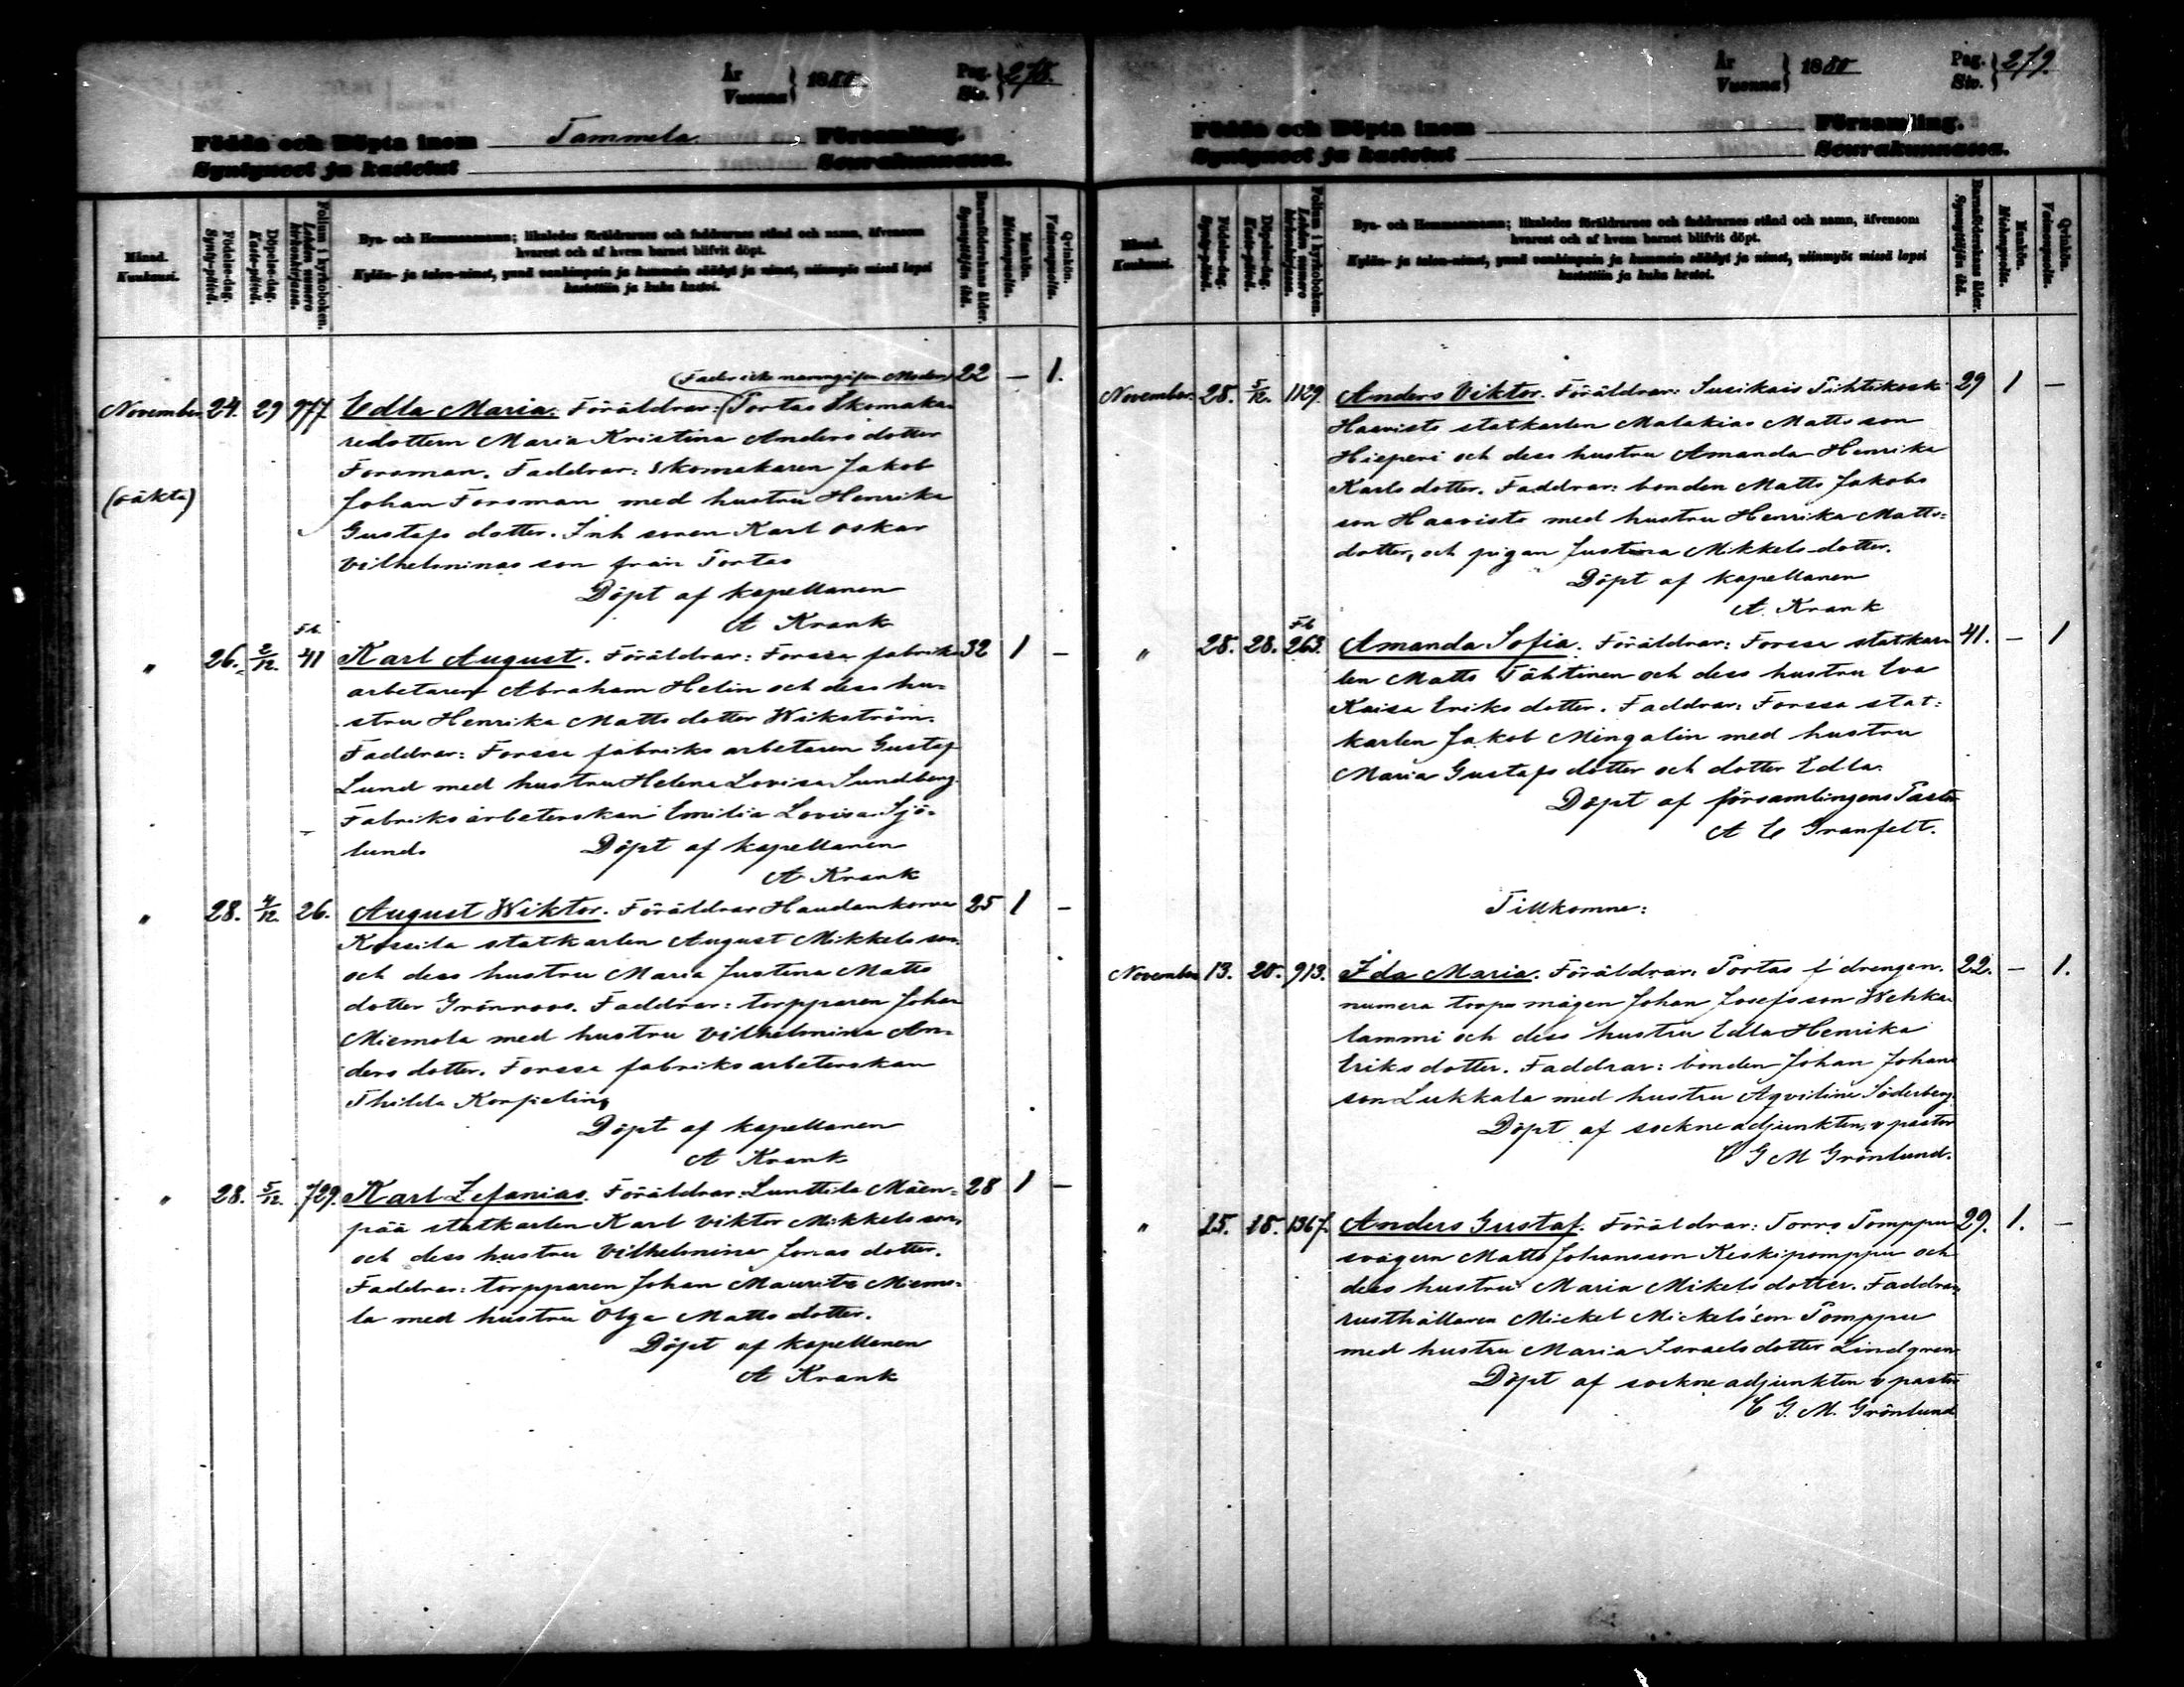 År
Vuonna } 1880. Pag.
Siv. } 278.
Födda och Döpta inom Tammela Församling.
Syntyneet ja kastetut Seurakunnassa.
Månad.
Kuukausi.
Födelse-dag.
Synty-päivä.
Döpelse-dag.
Kaste-päivä.
Folium i kyrkoboken.
Lehden numero
kirkonkirjassa.
Byn- och Hemmansnamn; likaledes föräldrarnes och faddrarnes stånd och namn, äfvensom
hvarest och af hvem barnet blifvit döpt.
Kylän- ja talon-nimet, ynnä vanhimpain ja kummein säädyt ja nimet, niinmyös missä lapsi
kastettiin ja kuka kastoi.
Barnaföderskans ålder.
Synnyttäjän ikä.
Mankön.
Miehenpuolta.
Qvinkön.
Vaimonpuolta.
(Fader icke namngifven Moder) 22 — 1.
November. 24. 29 977. Edla Maria. Föräldrar: (Portas Skomaka-
redottern Maria Kristina Andersdotter
Forsman. Faddrar: Skomakaren Jakob
(oäkta) Johan Forsman med hustru Henrika
Gustafs dotter. Inh sonen Karl Oskar
Vilhelminas son från Portas
Döpt af kapellanen
A Krank
Fb.
" 26. 2/12. 41 Karl August. Föräldrar: Forssa fabriks 32 1 —
arbetaren Abraham Helin och dess hu-
stru Henrika Matts dotter Wikström.
Faddrar: Forssa fabriks arbetaren Gustaf
Lund med hustru Helena Lovisa Sundberg.
Fabriks arbeterskan Emilia Lovisa Sjö-
lund. Döpt af kapellanen
A Krank
" 28. 4/12. 26. August Wiktor. Föräldrar Haudankorva 25 1 —
Kossila statkarlen August Mikkels son.
och dess hustru Maria Justina Matts
dotter Grönroos. Faddrar: torpparen Johan
Miemola med hustru Vilhelmina An-
ders dotter. Forssa fabriksarbeterskan
Thilda Korpelin
Döpt af kapellanen
A Krank
" 28. 5/12. 729. Karl Zefanias. Föräldrar: Lunttila Mäen- 28 1 —
pää statkarlen Karl Viktor Mikkels son
och dess hustru Vilhelmina Jonas dotter.
Faddrar: torpparen Johan Maurits Miemo-
la med hustru Olga Matts dotter.
Döpt af kapellanen
A Krank
År
Vuonna } 1880 Pag.
Siv. } 279.
Födda och Döpta inom Församling.
Syntyneet ja kastetut Seurakunnassa.
Månad.
Kuukausi.
Födelse-dag.
Synty-päivä.
Döpelse-dag.
Kaste-päivä.
Folium i kyrkoboken.
Lehden numero
kirkonkirjassa.
Byn- och Hemmansnamn; likaledes föräldrarnes och faddrarnes stånd och namn, äfvensom
hvarest och af hvem barnet blifvit döpt.
Kylän- ja talon-nimet, ynnä vanhimpain ja kummein säädyt ja nimet, niinmyös missä lapsi
kastettiin ja kuka kastoi.
Barnaföderskans ålder.
Synnyttäjän ikä.
Mankön.
Miehenpuolta.
Qvinkön.
Vaimonpuolta.
November. 28. 5/12. 1129. Anders Viktor. Föräldrar: Susikais Pihtikoski 29 1 —
Haavisto statkarlen Malakias Matts son
Hieperi och dess hustru Amanda Henrika
Karls dotter. Faddrar: bonden Matts Jakobs
son Haavisto med hustru Henrika Matts-
dotter, och pigan Justina Mikkels dotter.
Döpt af kapellanen
A. Krank
Fb
" 28. 28. 263. Amanda Sofia. Föräldrar: Forssa statkar- 41. — 1
len Matts Tähtinen och dess hustru Eva
Kaisa Eriks dotter. Faddrar: Forssa stat-
karlen Jakob Mingalin med hustru
Maria Gustafs dotter och dotter Edla.
Döpt af församlingens Pastor
A E Granfelt.
Tillkomne:
November 13. 20. 913. Ida Maria. Föräldrar: Portas f drengen. 22. — 1.
numera torpsmågen Johan Josefs son Wehka-
lammi och dess hustru Edla Henrika
Eriks dotter. Faddrar: bonden Johan Johans
son Lukkala med hustru Aqvilina Söderberg.
Döpt af sockne adjunkten, v pastor
C G M Grönlund.
" 15. 18. 1367. Anders Gustaf. Föräldrar: Torro Pomppu 29. 1. —
svågern Matts Johansson Keskipomppu och
dess hustru Maria Mikels dotter. Faddrar,
rusthållaren Mickel Mickels son Pomppu
med hustru Maria Israels dotter Lindgren
Döpt af sockne adjunkten v pastor
C G. M. Grönlund